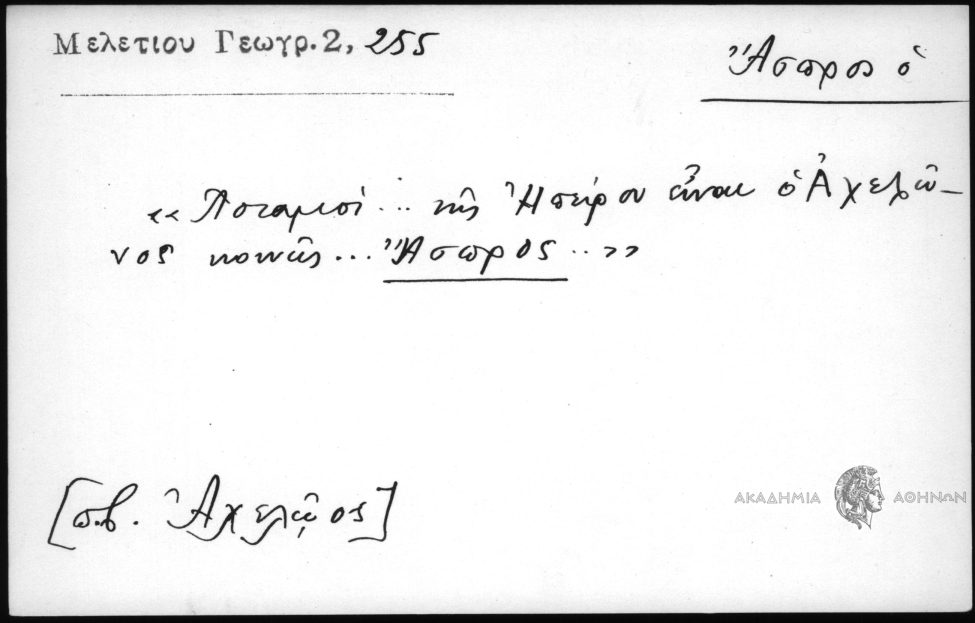 Μελετίου Γεωγρ. 2, 255
Ἄσπρος ὁ
«Ποταμοὶ ... τῆς Ἠπείρου εἶναι ὁ Ἀχελῶ-
νος κοινῶς ... Ἄσπρος ..»
[πβ. Ἀχελῷος]
ΑΚΑΔΗΜΙΑ ΑΘΗΝΩΝ